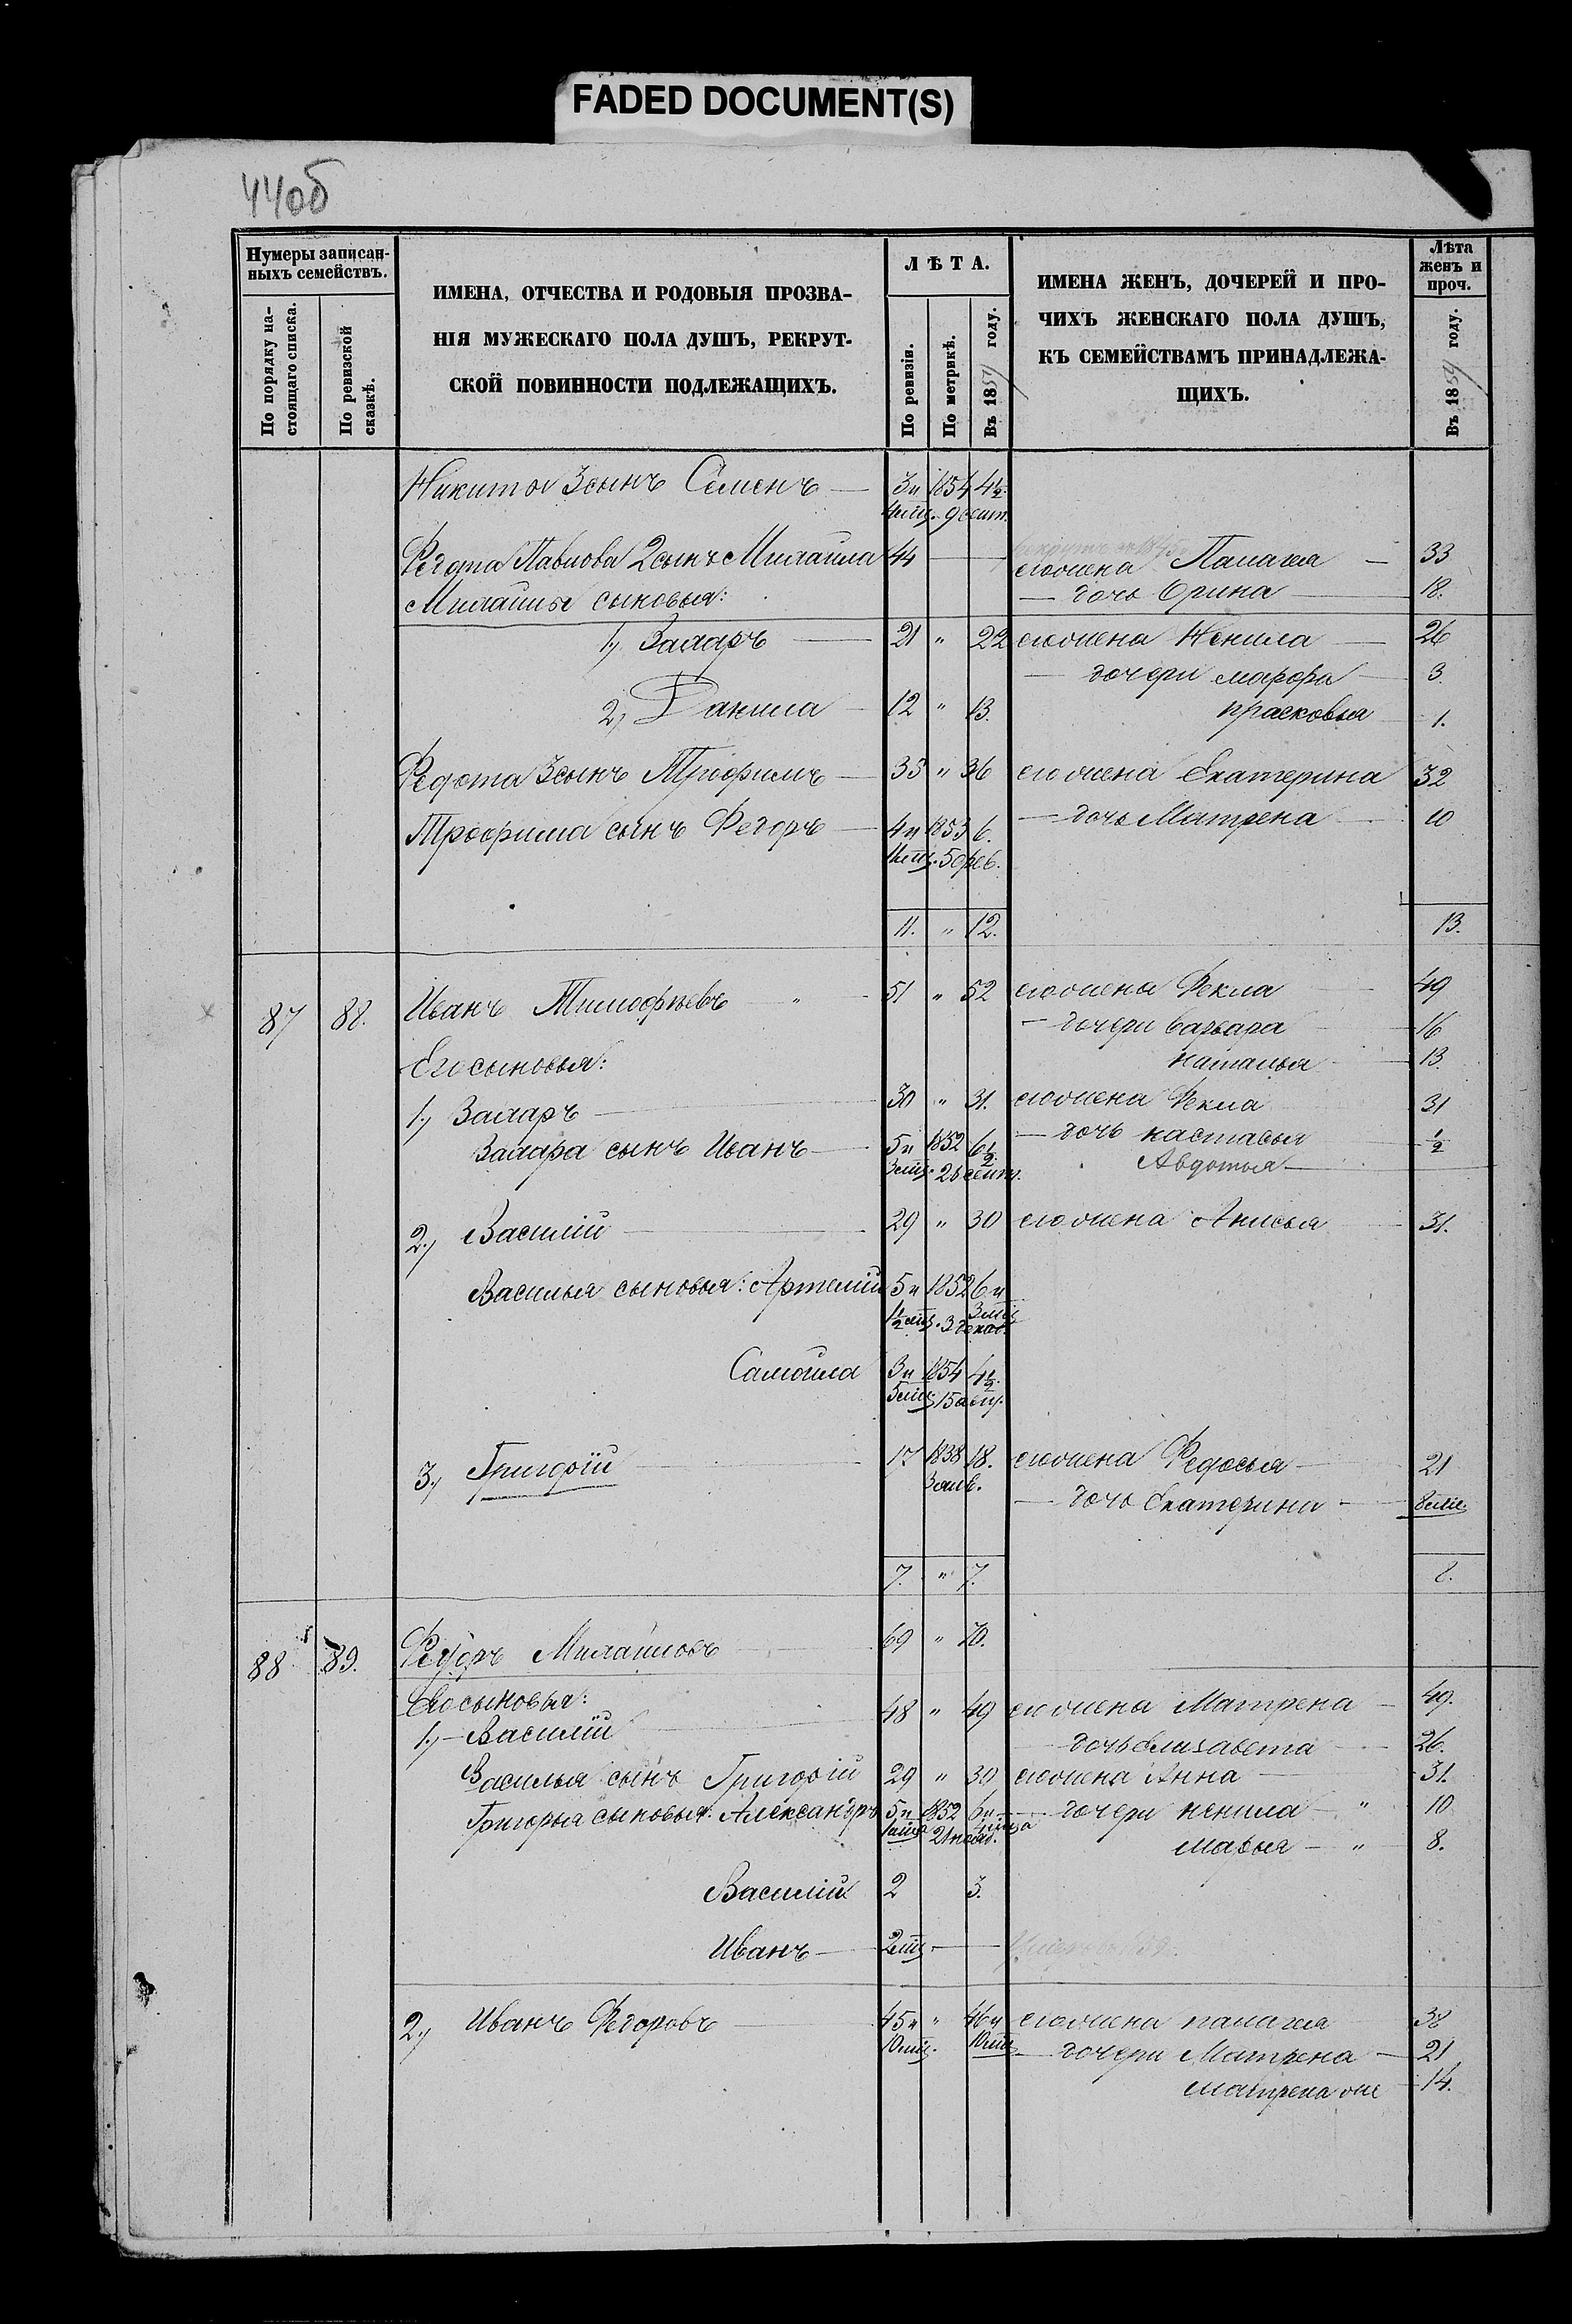 FADED DOCUMENT(S)
44об
Нумеры записан-
ныхъ семействъ.
По порядку на-
стоящаго списка.
По ревизской
сказкѣ.
ИМЕНА, ОТЧЕСТВА И РОДОВЫЯ ПРОЗВА-
НІЯ МУЖЕСКАГО ПОЛА ДУШЪ, РЕКРУТ-
СКОЙ ПОВИННОСТИ ПОДЛЕЖАЩИХЪ.
ЛѢТА.
По ревизіи.
По метрикѣ.
Въ 1859 году.
ИМЕНА ЖЕНЪ, ДОЧЕРЕЙ И ПРО-
ЧИХЪ ЖЕНСКАГО ПОЛА ДУШЪ,
КЪ СЕМЕЙСТВАМЪ ПРИНАДЛЕЖА-
ЩИХЪ.
Лѣта
женъ и
проч.
Въ 1859 году.
Никиты 3 сынъ Семенъ — 3 и 1854 4½.
9 сент.
Федота Павлова 2 сынъ Михайла 44 — его жена Палагея — 33
Михайлы сыновья: — дочь Орина — 18.
1, Захаръ — 21 " 22 его жена Ненила — 26
— дочери Марфа — 3.
2, Данила — 12 " 13. Прасковья — 1.
Федота 3 сынъ Трофимъ — 35 " 36 его жена Екатерина 32
Трофима сынъ Федоръ — 4 и 1853 6. — дочь Матрена — 10
5 фев.
11. " 12. 13.
87 88. Иванъ Тимофѣевъ — " — 51 " 52 его жена Фекла — 49
— дочери Варвара — 16
Его сыновья: Наталья — 13.
1, Захаръ — 30 " 31. его жена Фекла 31
Захара сынъ Иванъ — 5 и 1852 6½. — дочь Настасья ½
3 мц. 28 сент. Авдотья —
2, Василій — 29 " 30 его жена Анисья — 31.
Василья сыновья: Артемій 5 и 1852 6 и
1½ мц. 3 декаб. 3 мц
Самойла 3 и 1854 4½.
5 мц. 15 авгу.
3, Григорій — 17 1838 18. его жена Федосья — 21
3 янв. — дочь Екатерина — 8 мц.
7. " 7. 8.
88 89. Федоръ Михайловъ — 69 " 70.
Его сыновья:
1, — Василій — 48 " 49 его жена Матрена — 49.
— дочь Елизавета — 26.
Василья сынъ Григорій 29 " 30 его жена Анна — 31.
Григорья сыновья: Александръ 5 и 1852 6 и — дочери Ненила — " 10
21 нояб. Марья — " 8.
Василій 2 3.
Иванъ — 2 мц. —
2, Иванъ Федоровъ — 45 и " 46 и его жена Палагея 38
10 мц. 10 мц. — дочери Матрена — 21
Матрена же — 14.